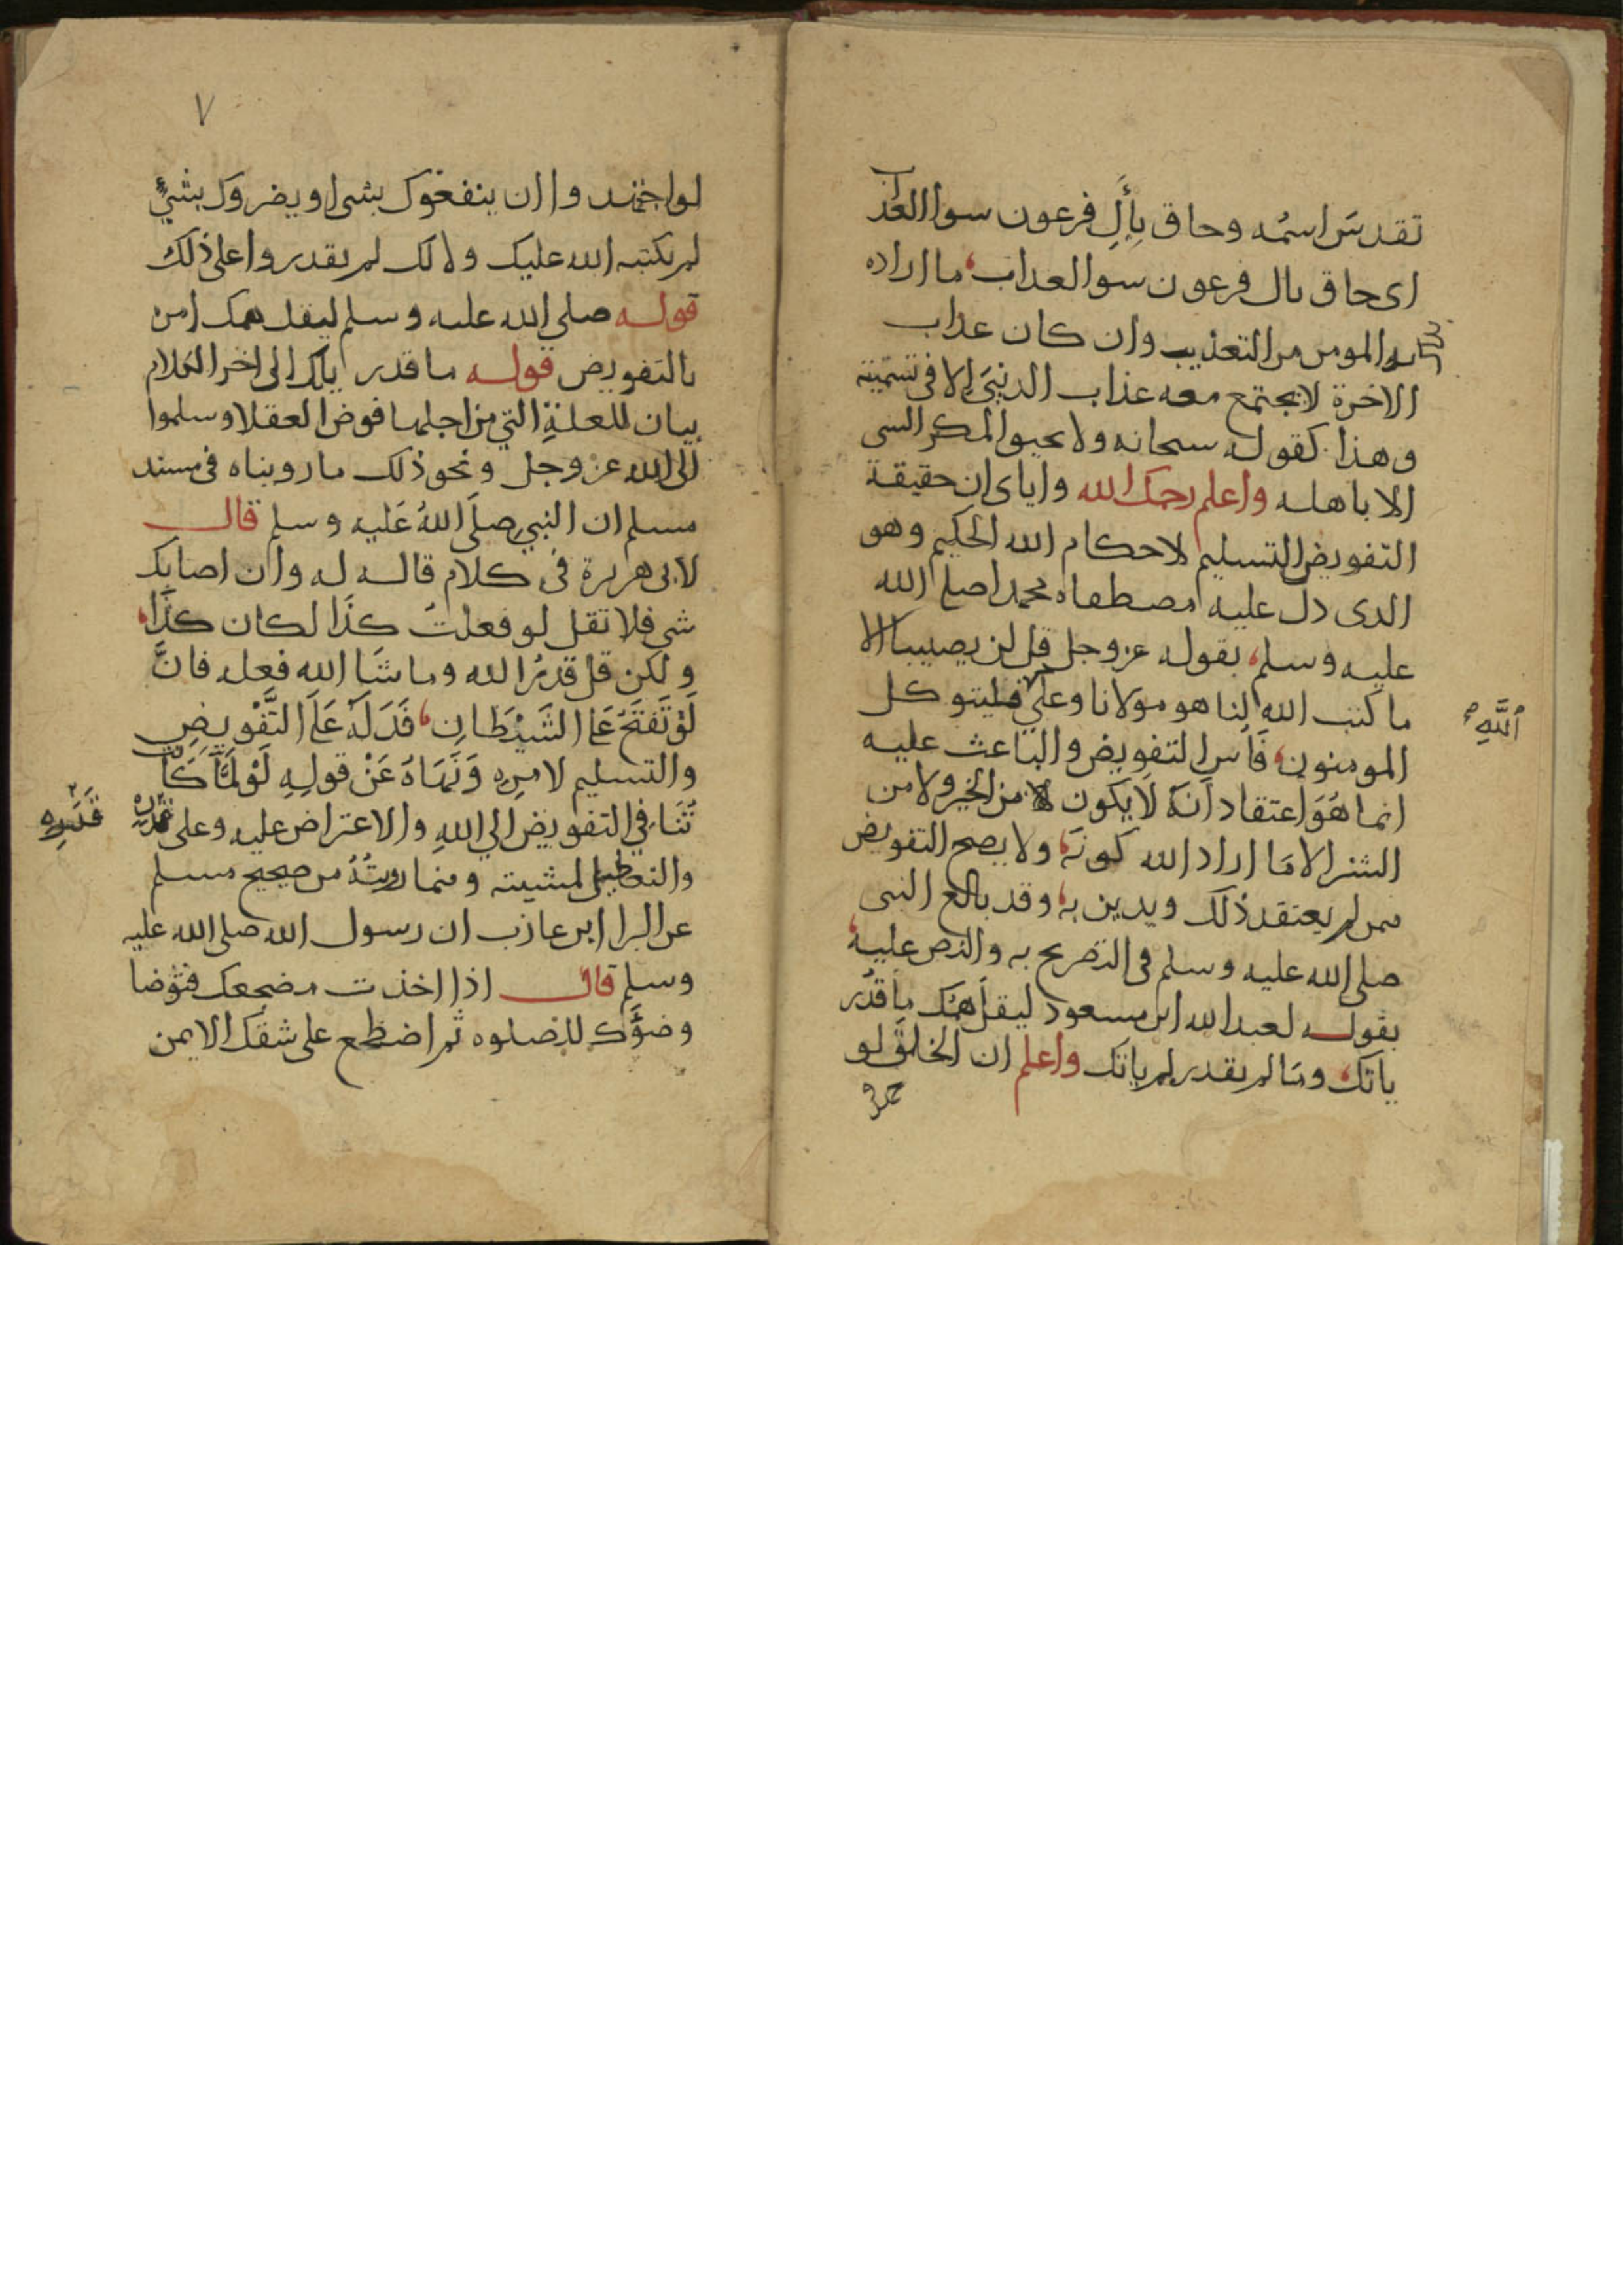 تقدس اسمه وحاق بأل فرعون سوا العذاب
اى حاق بال فرعون سوا لعداب ما اراده
بالمومن من التعذيب وان كان عداب
الاخرة لا يجتمع معه عذاب الدنيى الا فى تسميته
وهذا كقوله سبحانه ولا يحيق المكر السى
الا باهله واعلم رحمك الله واياى ان حقيقة
التفويض التسليم لاحكام الله الحكيم وهو
الدى دل عليه مصطفاه محمدا صلى الله
عليه وسلم بقوله عز وجل قل لن يصيبنا الا
ما كتب الله لنا هو مولانا وعلى الله فليتوكل
المومنون فاس التفويض والباعث عليه
انما هو اعتقاد انه لا يكون من الخير ولا من
الشر الا ما اراد الله كونه ولا يصح التفويض
ممن لم يعتقد ذلك ويدين به وقد بالغ النبى
صلى الله عليه وسلم فى التصريح به والنص عليه
بقوله لعبد الله ابن مسعود ليقل همك ما قدر
ياتك وما لم يقدر لم ياتك واعلم ان الخلق لو
الله
٧
لو اجتهدوا ان ينفعوك بشى او يضروك بشيء
لم يكتبه الله عليك ولا لك لم يقدروا على ذلك
قوله صلى الله عليه وسلم ليقل همك امن
بالتفويض قوله ما قدر ياتك الى اخر الكلام
بيان للعلة التي من اجلها فوض العقلا وسلموا
الى الله عز وجل ونحو ذلك ما رويناه فى مسند
مسلم ان النبي صلى الله عليه وسلم قال
لابى هريرة فى كلام قاله له وان اصابك
شى فلا تقل لو فعلت كذا لكان كذا
ولكن قل قدر الله وما شا الله فعله فان
لو تفتح عمل الشيطان فدله على التفويض
والتسليم لامره ونهاه عن قوله لو لما كانت
تنافي التفويض الي الله والاعتراض عليه وعلى قدره
والتعاطى لمشيته ومنما رويته من صحيح مسلم
عن البرا ابن عازب ان رسول الله صلى الله عليه
وسلم قال اذا اخذت مضجعك فتوضا
وضوءك للصلوه ثم اضطجع على شقك الايمن
قدره